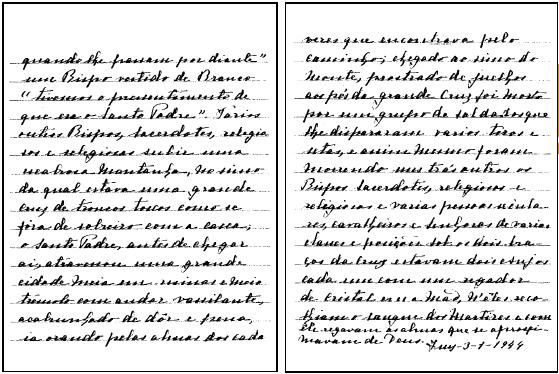 quando lhe passam por diante"
um Bispo vestido de Branco
"tivemos o pressentimento de
que era o Santo Padre". Varios
outros Bispos, Sacerdotes, religio
sos e religiosas subir uma
escabrosa montanha, no simo
da qual estava uma grande
cruz de troncos toscos como se
fôra de sobreiro com a casca;
o Santo Padre, antes de chegar
aí, atravessou uma grande
cidade meia em ruinas e meio
trémulo com andar vacilante,
acabrunhado de dôr e pena,
ia orando pelas almas dos cada
veres que encontrava pelo
caminho; chegado ao simo do
monte, prostrado de juelhos
aos pés da grande Cruz foi morto
por um grupo de soldados que
lhe dispararam varios tiros e
setas, e assim mesmo foram
morrendo uns trás outros os
Bispos Sacerdotes, religiosos e
religiosas e varias pessoas secula-
res, cavalheiros e senhoras de varias
classes e posições. Sob os dois bra-
ços da Cruz estavam dois Anjos
cada um com um regador
de cristal em a mão, n'êles reco-
lhiam o sangue dos Martires e com
êle regavam as almas que se aproxi-
mavam de Deus.
Tuy-3-1-1944